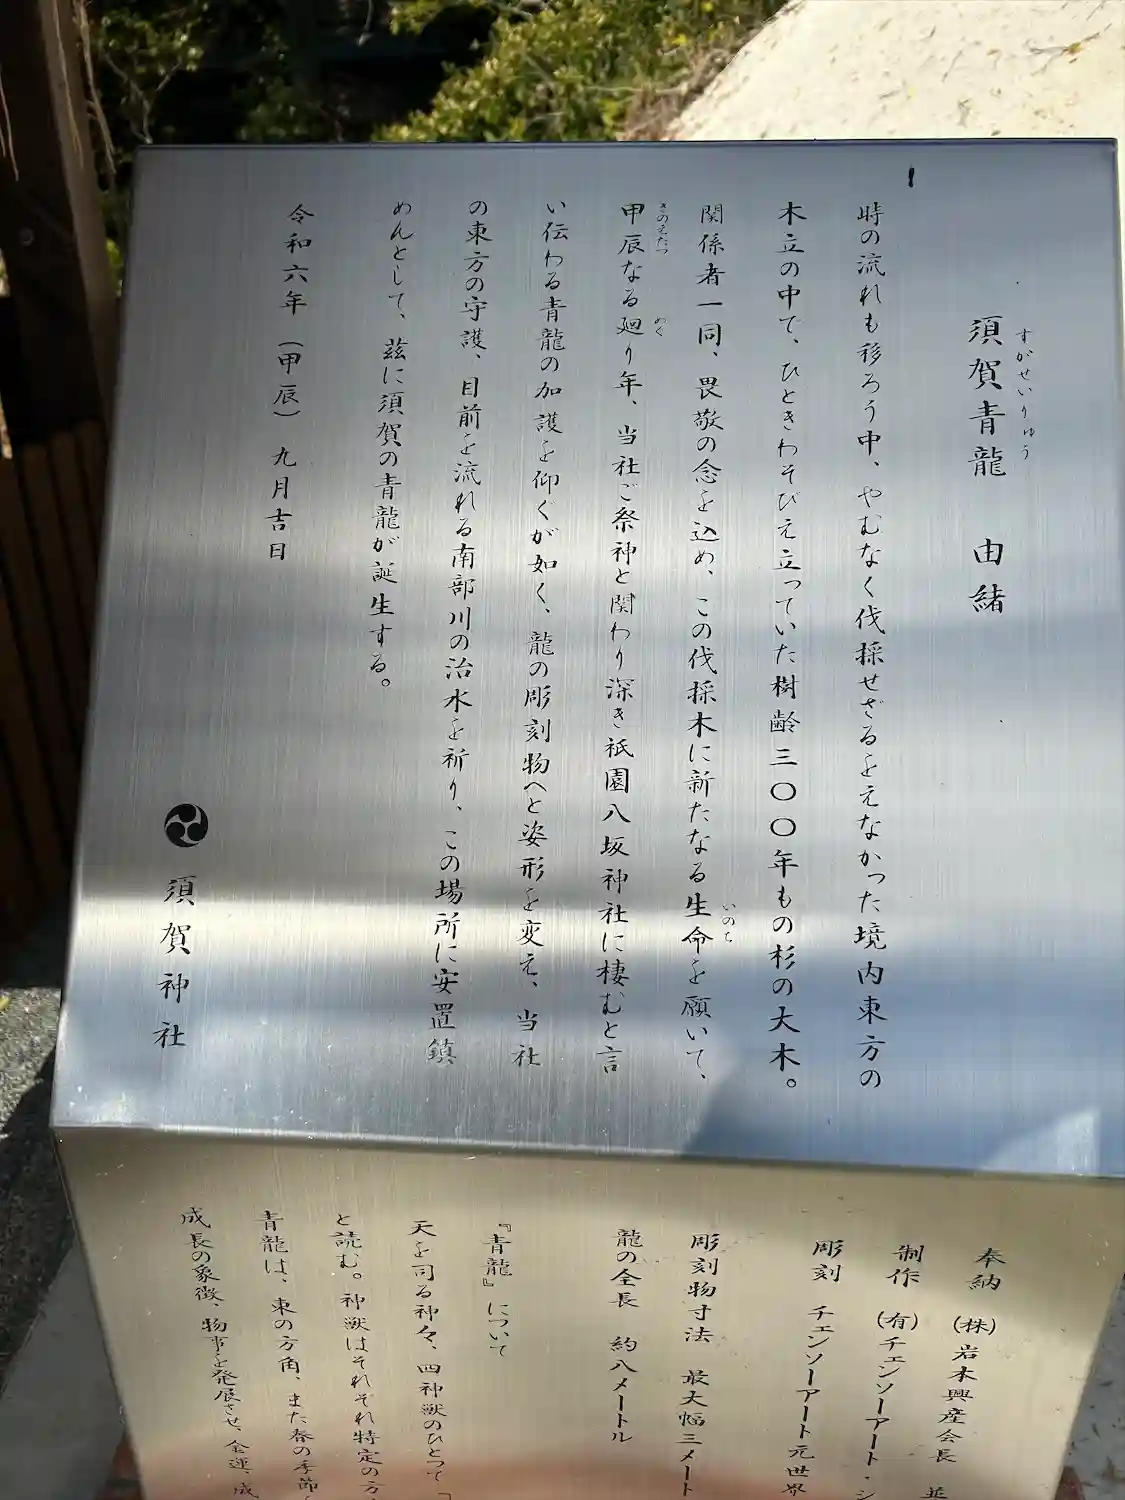 すがせいりゅう
須賀青龍　由緒
時の流れも移ろう中、やむなく伐採せざるをえなかった境内東方の
木立の中で、ひときわそびえ立っていた樹齢三〇〇年もの杉の大木。
関係者一同、畏敬の念を込め、この伐採木に新たなる生命を願いて、
いのち
甲辰なる廻り年、当社ご祭神と関わり深き祇園八坂神社に棲むと言
きのえたつ
めぐ
い伝わる青龍の加護を仰ぐが如く、龍の彫刻物へと姿形を変え、当社
の東方の守護、目前を流れる南部川の治水を祈り、この場所に安置鎮
めんとして、茲に須賀の青龍が誕生する。
令和六年（甲辰）九月吉日
須賀神社
奉納　(株)岩本興産会長
制作　(有)チェンソーアート・
彫刻　チェンソーアート元世界
彫刻物寸法　最大幅三メート
龍の全長　約八メートル
『青龍』について
天を司る神々、四神獣のひとつで「
と読む。神獣はそれぞれ特定の方
青龍は、東の方角、また春の季節
成長の象徴、物事を発展させ、金運、成